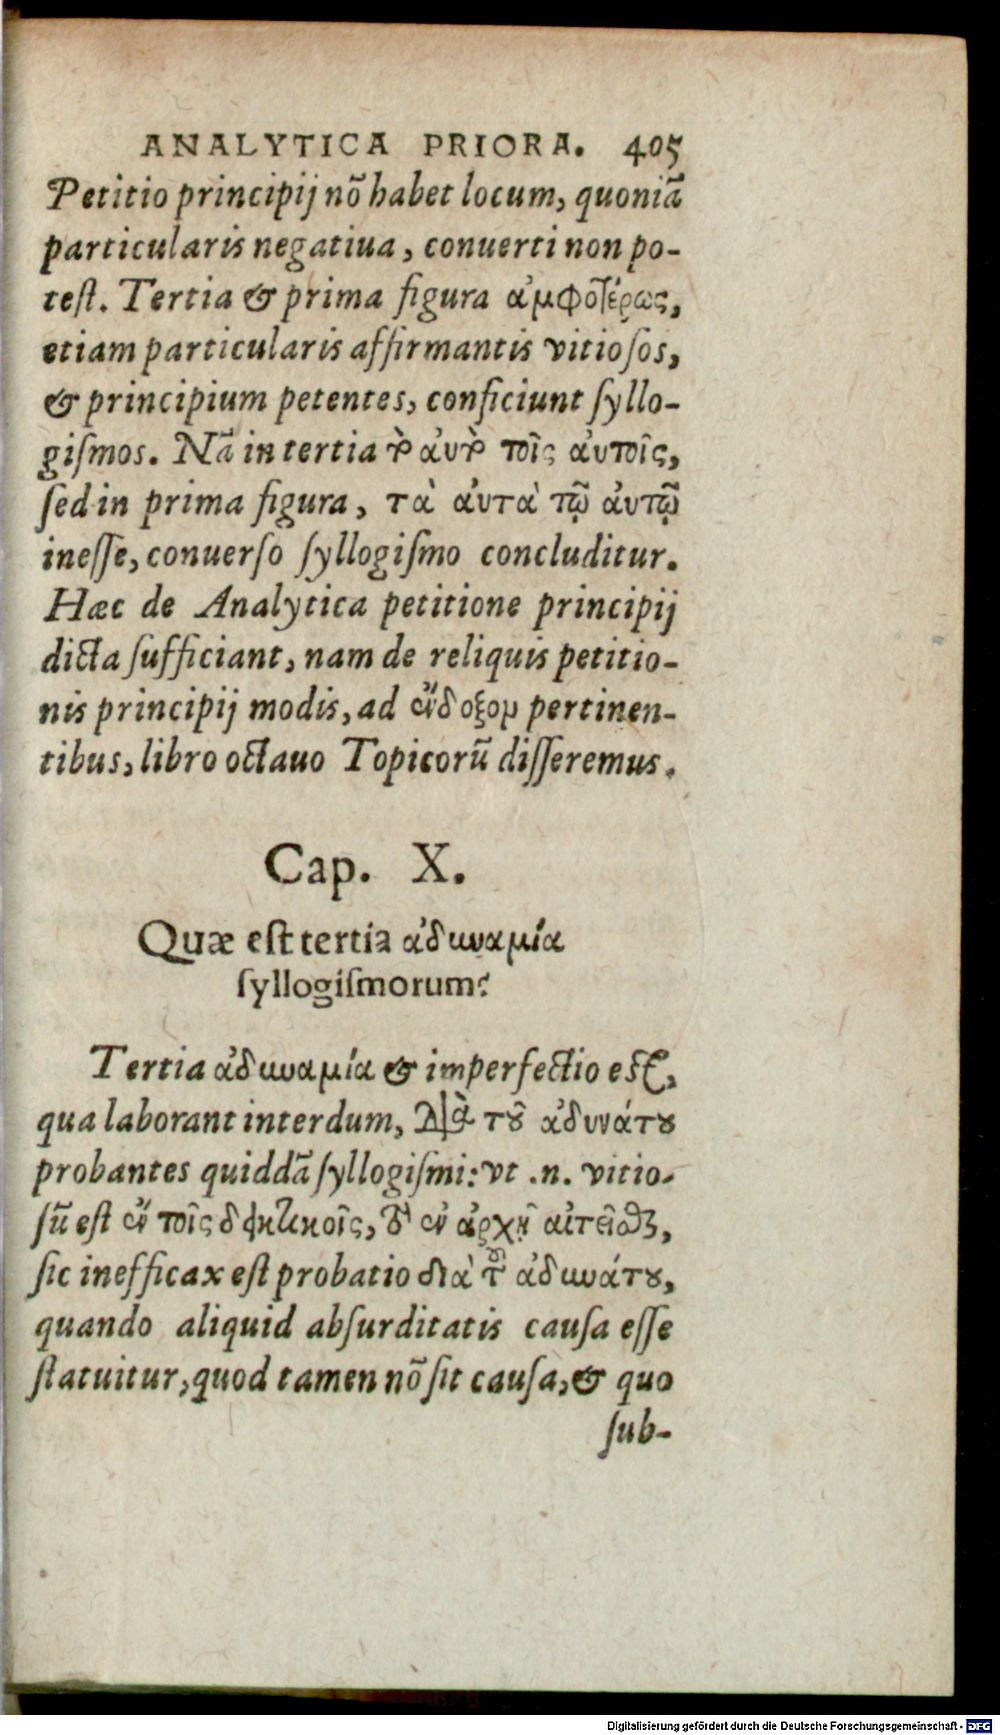 ANALYTICA PRIORA. 405
Petitio principij nõ habet locum, quoniã
particularis negatiua, conuerti non po-
test. Tertia & prima figura ἀμφοτέρως,
etiam particularis affirmantis vitiosos,
& principium petentes, conficiunt syllo-
gismos. Nã in tertia τὸ αὐτὸ τοῖς αὐτοῖς,
sed in prima figura, τὰ αὐτὰ τῷ αὐτῷ
inesse, conuerso syllogismo concluditur.
Hæc de Analytica petitione principij
dicta sufficiant, nam de reliquis petitio-
nis principij modis, ad ἔνδοξον pertinen-
tibus, libro octauo Topicorũ disseremus.
Cap. X.
Quæ est tertia ἀδυναμία
syllogismorum?
Tertia ἀδυναμία & imperfectio est,
qua laborant interdum, διὰ τοῦ ἀδυνάτου
probantes quiddã syllogismi: vt .n. vitio-
sũ est ἐν τοῖς δεικτικοῖς, τὸ ἐν ἀρχῇ αἰτεῖσθαι,
sic inefficax est probatio διὰ τοῦ ἀδυνάτου,
quando aliquid absurditatis causa esse
statuitur, quod tamen nõ sit causa, & quo
sub-
Digitalisierung gefördert durch die Deutsche Forschungsgemeinschaft - DFG